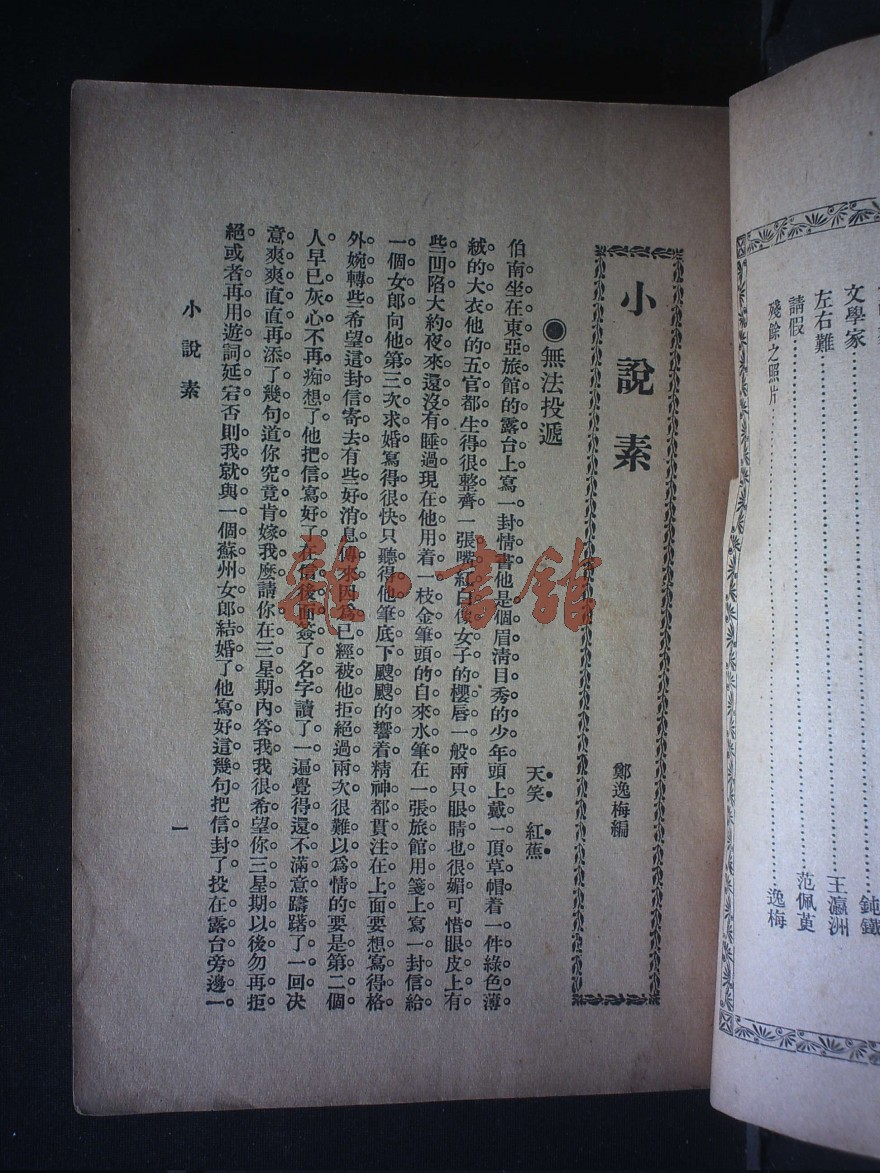 文學家⋯⋯鈍鐵
左右難⋯⋯王瀛洲
請假⋯⋯范佩萸
殘餘之照片⋯⋯逸梅
小說素
鄭逸梅編
●無法投遞
天笑 紅蕉
伯南坐在東亞旅館的露台上寫一封情書他是個眉清目秀的少年頭上戴一頂草帽着一件綠色薄
絨的大衣他的五官都生得很整齊一張嘴紅白像女子的櫻唇一般兩只眼睛也很媚可惜眼皮上有
些凹陷大約夜來還沒有睡過現在他用着一枝金筆頭的自來水筆在一張旅館用箋上寫一封信給
一個女郎向他第三次求婚寫得很快只聽得他筆底下颼颼的響着精神都貫注在上面要想寫得格
外婉轉些希望這封信寄去有些好消息傳來因為已經被他拒絕過兩次很難以爲情的要是第二個
人早已灰心不再痴想了他把信寫好了在信後面簽了名字讀了一遍覺得還不滿意躊躇了一回决
意爽爽直直再添了幾句道你究竟肯嫁我麽請你在三星期內答我我很希望你三星期以後勿再拒
絕或者再用遊詞延宕否則我就與一個蘇州女郎結婚了他寫好這幾句把信封了投在露台旁邊一
小說素
一
雜·書館